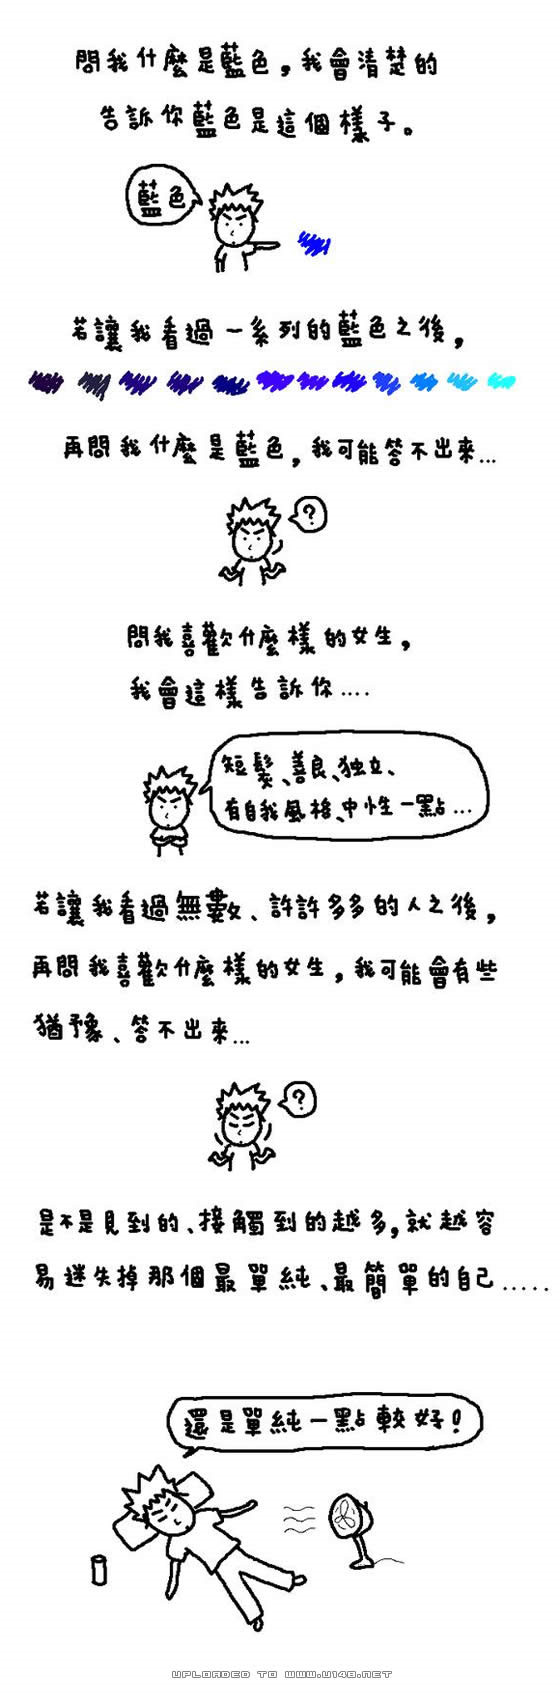 問我什麼是藍色，我會清楚的
告訴你藍色是這個樣子。
藍色
若讓我看過一系列的藍色之後，
再問我什麼是藍色，我可能答不出來...
?
問我喜歡什麼樣的女生，
我會這樣告訴你....
短髮、善良、独立、
有自我風格、中性一點...
若讓我看過無數、許許多多的人之後，
再問我喜歡什麼樣的女生，我可能會有些
猶豫、答不出來...
?
是不是見到的、接觸到的越多，就越容
易迷失掉那個最單純、最簡單的自己.....
還是單純一點較好！
UPLOADED TO WWW.U148.NET